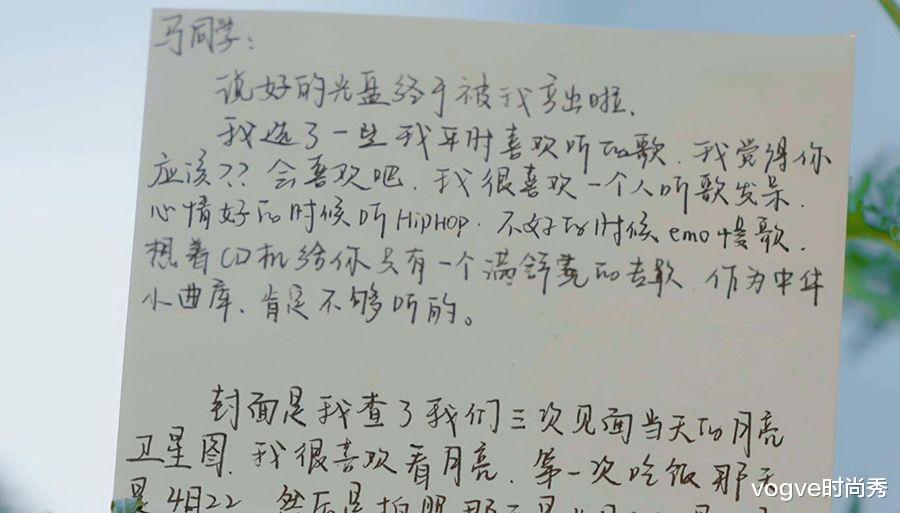 马同学：
说好的光盘终于被我弄出啦.
我选了一些我平时喜欢听的歌.我觉得你
应该??会喜欢吧.我很喜欢一个人听歌发呆.
心情好的时候听HIPHOP.不好的时候emo慢歌.
想着CD机给你只有一个满舒克的专歌.作为中华
小曲库.肯定不够听的。
封面是我查了我们三次见面当天的月亮
卫星图.我很喜欢看月亮.第一次吃饭那天
是4月22.然后是拍照那
vogve时尚秀